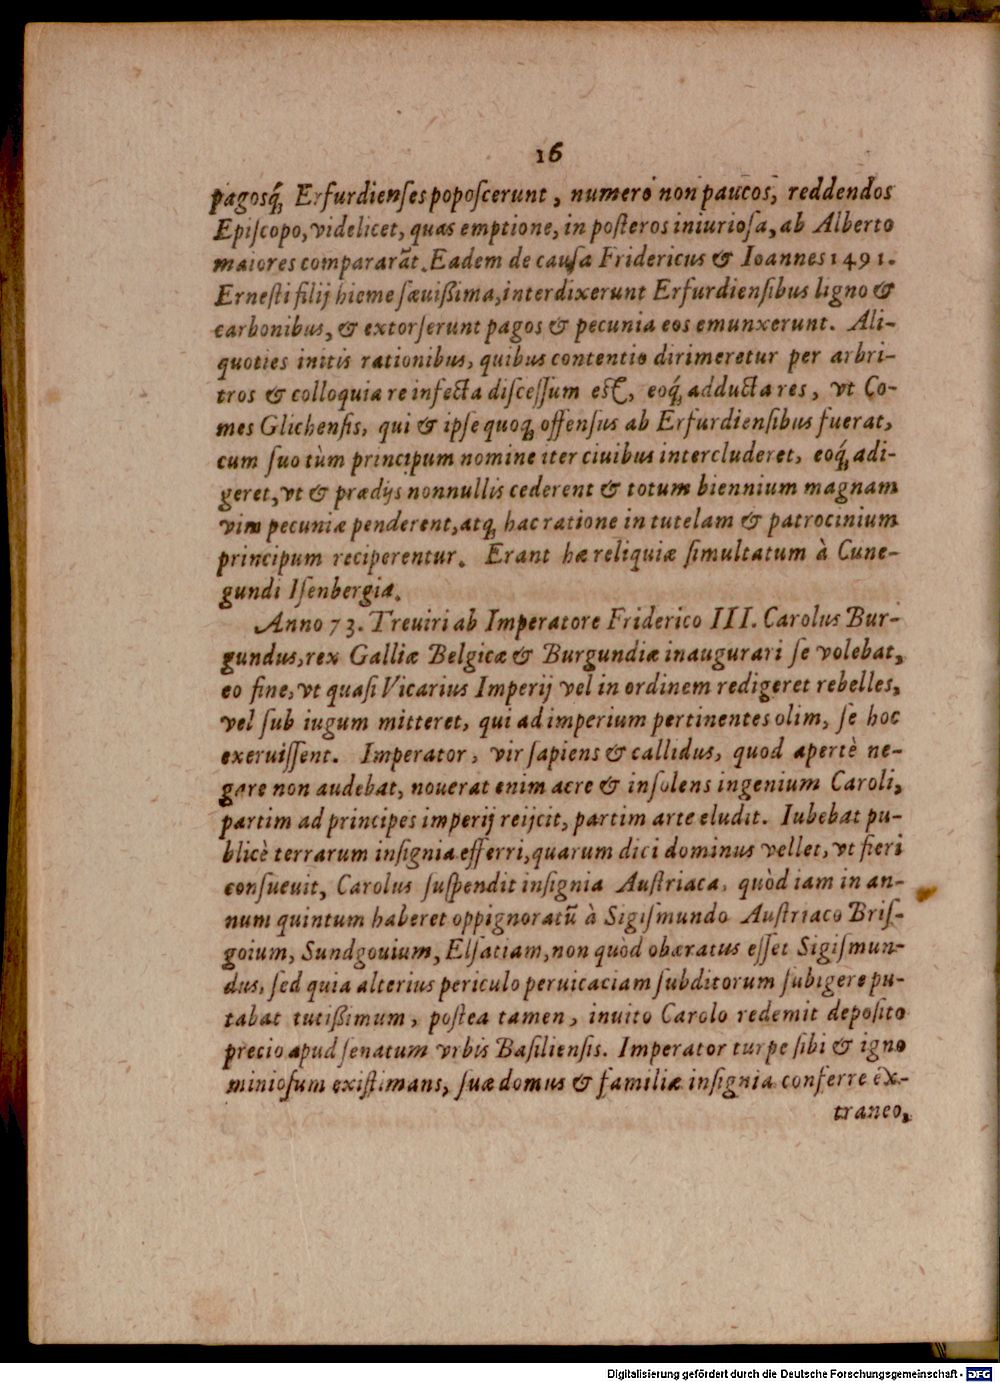 16
pagosq́; Erfurdienſes popoſcerunt, numero non paucos, reddendos
Epiſcopo, videlicet, quas emptione, in poſteros iniurioſa, ab Alberto
maiores compararāt. Eadem de cauſa Fridericus & Ioannes 1491.
Erneſti filij hieme ſæuißima, interdixerunt Erfurdienſibus ligno &
carbonibus, & extorſerunt pagos & pecunia eos emunxerunt. Ali-
quoties initis rationibus, quibus contentio dirimeretur per arbri-
tros & colloquia re infecta diſceſſum eſt, eoq́; adducta res, vt Co-
mes Glichenſis, qui & ipſe quoq; offenſus ab Erfurdienſibus fuerat,
cum ſuo tùm principum nomine iter ciuibus intercluderet, eoq́; adi-
geret, vt & prædijs nonnullis cederent & totum biennium magnam
vim pecuniæ penderent, atq; hac ratione in tutelam & patrocinium
principum reciperentur. Erant hæ reliquiæ ſimultatum à Cune-
gundi Iſenbergia.
Anno 73. Treuiri ab Imperatore Friderico III. Carolus Bur-
gundus, rex Galliæ Belgicæ & Burgundiæ inaugurari ſe volebat,
eo fine, vt quaſi Vicarius Imperij vel in ordinem redigeret rebelles,
vel ſub iugum mitteret, qui ad imperium pertinentes olim, ſe hoc
exeruiſſent. Imperator, vir ſapiens & callidus, quod apertè ne-
gare non audebat, nouerat enim acre & inſolens ingenium Caroli,
partim ad principes imperij reijcit, partim arte eludit. Iubebat pu-
blicè terrarum inſignia efferri, quarum dici dominus vellet, vt fieri
conſueuit, Carolus ſuſpendit inſignia Auſtriaca, quòd iam in an-
num quintum haberet oppignoratū à Sigiſmundo Auſtriaco Briſ-
goium, Sundgouium, Elſatiam, non quòd obæratus eſſet Sigiſmun-
dus, ſed quia alterius periculo peruicaciam ſubditorum ſubigere pu-
tabat tutißimum, poſtea tamen, inuito Carolo redemit depoſito
precio apud ſenatum vrbis Baſilienſis. Imperator turpe ſibi & igno
minioſum exiſtimans, ſuæ domus & familiæ inſignia conferre ex-
traneo,
Digitalisierung gefördert durch die Deutsche Forschungsgemeinschaft - DFG